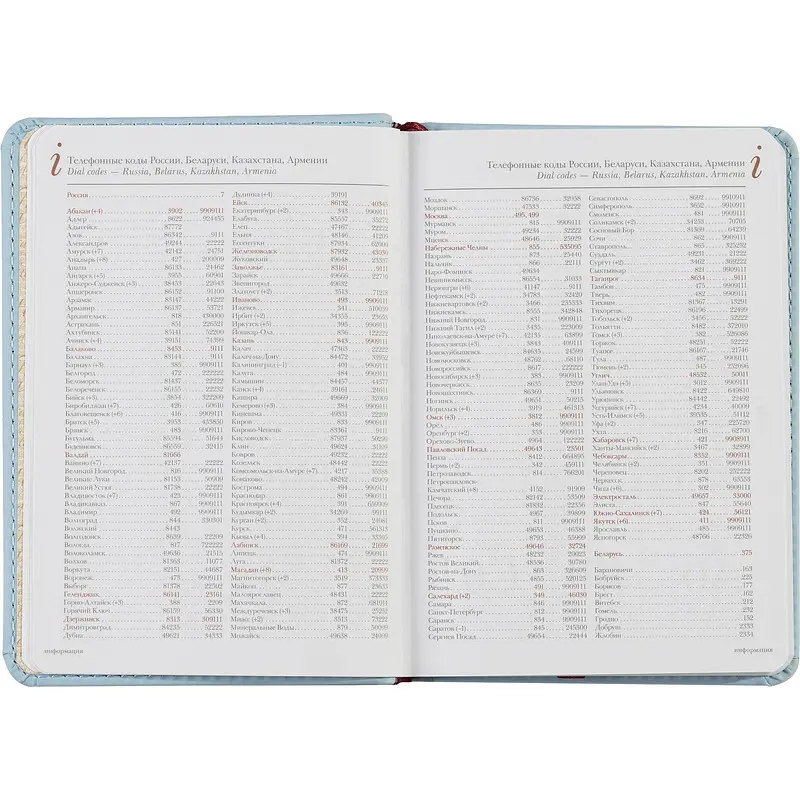 i
Телефонные коды России, Беларуси, Казахстана, Армении
Dial codes — Russia, Belarus, Kazakhstan, Armenia
Россия 7
Абакан (+4) 3902 9909111
Адлер 8622 924455
Адыгейск 87772
Азов 86342 9111
Александров 49244 22222
Амурск (+7) 42142 24751
Анадырь (+8) 427 200009
Анапа 86133 24462
Ангарск (+5) 3955 60901
Апшеронск 86152 91100
Арзамас 83147 44222
Армавир 86137 53721
Архангельск 818 430000
Астрахань 851 226521
Ахтубинск 85141 52209
Ачинск (+4) 39151 74399
Балаково 8453 9111
Балахна 83144 9111
Барнаул (+3) 385 9909111
Белгород 472 222222
Беломорск 81437 22222
Белореченск 86155 22232
Бийск (+3) 3854 322209
Биробиджан (+7) 426
Благовещенск (+6) 416 9909111
Братск (+5) 3953 433850
Брянск 483 9909111
Бугульма 85594 51644
Буденновск 86559 32415
Валдай 81666
Ванино (+7) 42137 22222
Великий Новгород 816 9909111
Великие Луки 81153 50909
Великий Устюг 81738 22222
Владивосток (+7) 423 9909111
Владикавказ 867 9909111
Владимир 492 9909111
Волгоград 844 330301
Волжский 8443
Волгодонск 8639 22209
Вологда 817 722222
Волоколамск 49636 21515
Волхов 81363 11077
Воркута 82151 44687
Воронеж 473 9909111
Выборг 81378 22502
Геленджик 86141 23161
Горно-Алтайск (+3) 388 2209
Горячий Ключ 86159 36330
Дзержинск 8313 309111
Димитровград 84235 52222
Дубна 49621 34333
Дудинка (+4) 39191
Ейск 86132 40345
Екатеринбург (+2) 343 9909111
Елабуга 85557 35272
Елец 47467 22222
Ельня 48146 41206
Ессентуки 87934 62000
Железноводск 87932 43030
Жуковский 49648 22337
Заволжье 83161 9111
Зарайск 49666 22770
Звенигород 49632
Златоуст (+2) 3513 71213
Иваново 493 9909111
Ижевск 341 510039
Ирбит (+2) 34355 23655
Иркутск (+5) 395 9909111
Йошкар-Ола 836 122222
Казань 843 9909111
Калач 47363 22222
Калач-на-Дону 84472 33952
Калининград (-1) 401 9909111
Калуга 484 9909111
Камышин 84457 44577
Канск (+4) 39161 21611
Кашира 49669 32009
Кемерово (+3) 384 9909111
Кинешма 49331 22209
Киров 833 9909111
Кирово-Чепецк 83361 9111
Кисловодск 87937 50299
Клин 49624 31109
Ковров 49232 22222
Козельск 48442 22222
Комсомольск-на-Амуре (+7) 4217 50388
Конаково 48242 42909
Кострома 494 9909111
Краснодар 861 9909111
Красноярск (+4) 391 659909
Кудымкар (+2) 34260 99111
Курган (+2) 352 24681
Курск 471 561313
Кызыл (+4) 394 33365
Лабинск 86169 21699
Липецк 474 9909111
Луга 81372 22222
Магадан (+8) 413 20999
Магнитогорск (+2) 3519 373333
Майкоп 877 23635
Малоярославец 48431 22222
Махачкала 872 681911
Междуреченск (+3) 38475 23232
Миасс (+2) 3513 73222
Минеральные Воды 879 50909
Можайск 49638 24009
информация
i
Телефонные коды России, Беларуси, Казахстана, Армении
Dial codes — Russia, Belarus, Kazakhstan, Armenia
Моздок 86736 32038
Моршанск 47533 32222
Москва 495, 499
Мурманск 815 9909111
Муром 49234 32222
Мценск 48646 25929
Набережные Челны 855 535095
Назрань 873 25440
Нальчик 866 22111
Наро-Фоминск 49634
Невинномысск 86554 31033
Нерюнгри (+6) 41147 9111
Нефтекамск (+2) 34783 32420
Нижневартовск (+2) 3466 235333
Нижнекамск 8555 342848
Нижний Новгород 831 9909111
Нижний Тагил (+2) 3435 223009
Николаевск-на-Амуре (+7) 42135 63899
Новокузнецк (+3) 3843 409111
Новокуйбышевск 84635 24599
Новомосковск 48762 68110
Новороссийск 8617 222222
Новосибирск (+3) 383 9909111
Новочеркасск 8635 23209
Новошахтинск 86369 9111
Ногинск 49651 50215
Норильск (+4) 3919 461313
Омск (+3) 3812 9909111
Орёл 486 9909111
Оренбург (+2) 353 9909111
Орехово-Зуево 4964 122222
Павловский Посад 49643 23501
Пенза 8412 9909111
Пермь (+2) 342 459111
Петрозаводск 814 766201
Петропавловск-
Камчатский (+8) 4152 91909
Печора 82142 53509
Плесецк 81832 22356
Подольск 4967 39899
Псков 811 9909111
Пушкино 49653 46388
Пятигорск 8793 55999
Раменское 49646 32724
Ржев 48232 20023
Ростов Великий 48536 30780
Ростов-на-Дону 863 2909999
Рыбинск 4855 320125
Рязань 491 9909111
Салехард (+2) 349 46030
Самара 846 9909111
Санкт-Петербург 812 9909111
Саранск 834 9909111
Саратов (-1) 845 245300
Сергиев Посад 49654 22444
Севастополь 8692 9910911
Симферополь 3652 9909111
Смоленск 481 9909111
Соликамск (+2) 34253 70705
Сосновый Бор 81369 64239
Сочи 862 9909111
Ставрополь 865 325252
Суздаль 49231 21222
Сургут (+2) 3462 369222
Сыктывкар 821 9909111
Таганрог 8634 9111
Тамбов 475 9909111
Тверь 482 9909111
Тихвин 81367 13291
Тихорецк 86196 22499
Тобольск (+2) 3456 32222
Тольятти 8482 372010
Томск (+3) 382 526086
Торжок 48251 52222
Туапсе 86167 21746
Тула 487 9909111
Тюмень (+2) 345 252096
Углич 48532 50011
Улан-Удэ (+5) 3012 9909111
Ульяновск 8422 449830
Урюпинск 84442 22492
Уссурийск (+7) 4234 40009
Усть-Илимск (+5) 39535 51112
Уфа (+2) 347 225720
Ухта 8216 62700
Хабаровск (+7) 421 9908911
Ханты-Мансийск (+2) 3467 32899
Чебоксары 8352 9909111
Челябинск (+2) 351 9909111
Череповец 8202 252222
Черкесск 878 63553
Чита (+6) 302 9909111
Электросталь 49657 33000
Элиста 847 55640
Южно-Сахалинск (+7) 424 56121
Якутск (+6) 411 9909111
Ярославль 485 9909111
Ясногорск 48766 22326
Беларусь 375
Барановичи 163
Бобруйск 225
Борисов 177
Брест 162
Витебск 212
Гомель 232
Гродно 152
Добруш 2333
Жлобин 2334
информация